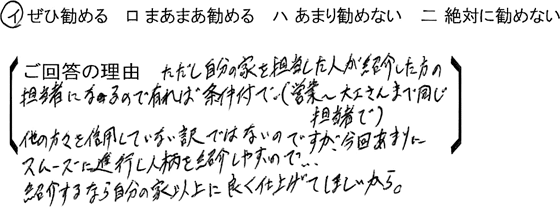 イ ぜひ勧める ロ まあまあ勧める ハ あまり勧めない ニ 絶対に勧めない
ご回答の理由 ただし自分の家を担当した人が紹介した方の
担当者になるので有れば条件付で。(営業〜大工さんまで同じ
担当者で)
他の方々を信用していない訳ではないのですが、今回あまりに
スムーズに進行し人柄を紹介しやすいので…
紹介するなら自分の家以上に良く仕上げてほしいから。